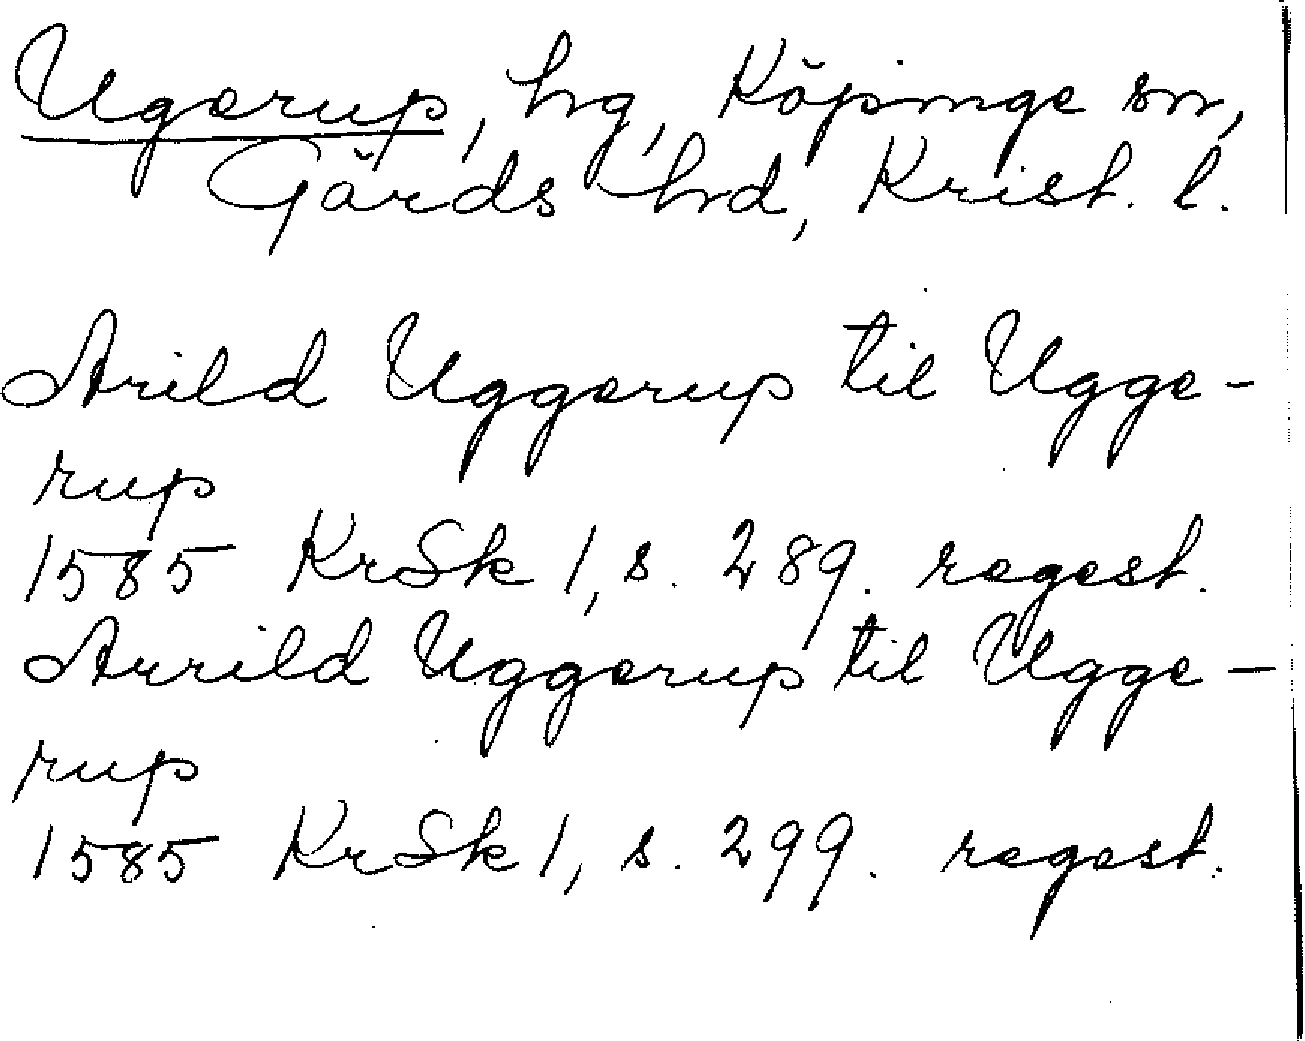 Ugerup, hg, Köpinge sn,
Gärds hd, Krist. l.
Arild Uggerup til Ugge-
rup
1585 KrSk 1, s. 289. regest.
Avrild Uggerup til Ugge-
rup
1585 KrSk 1, s. 299. regest.